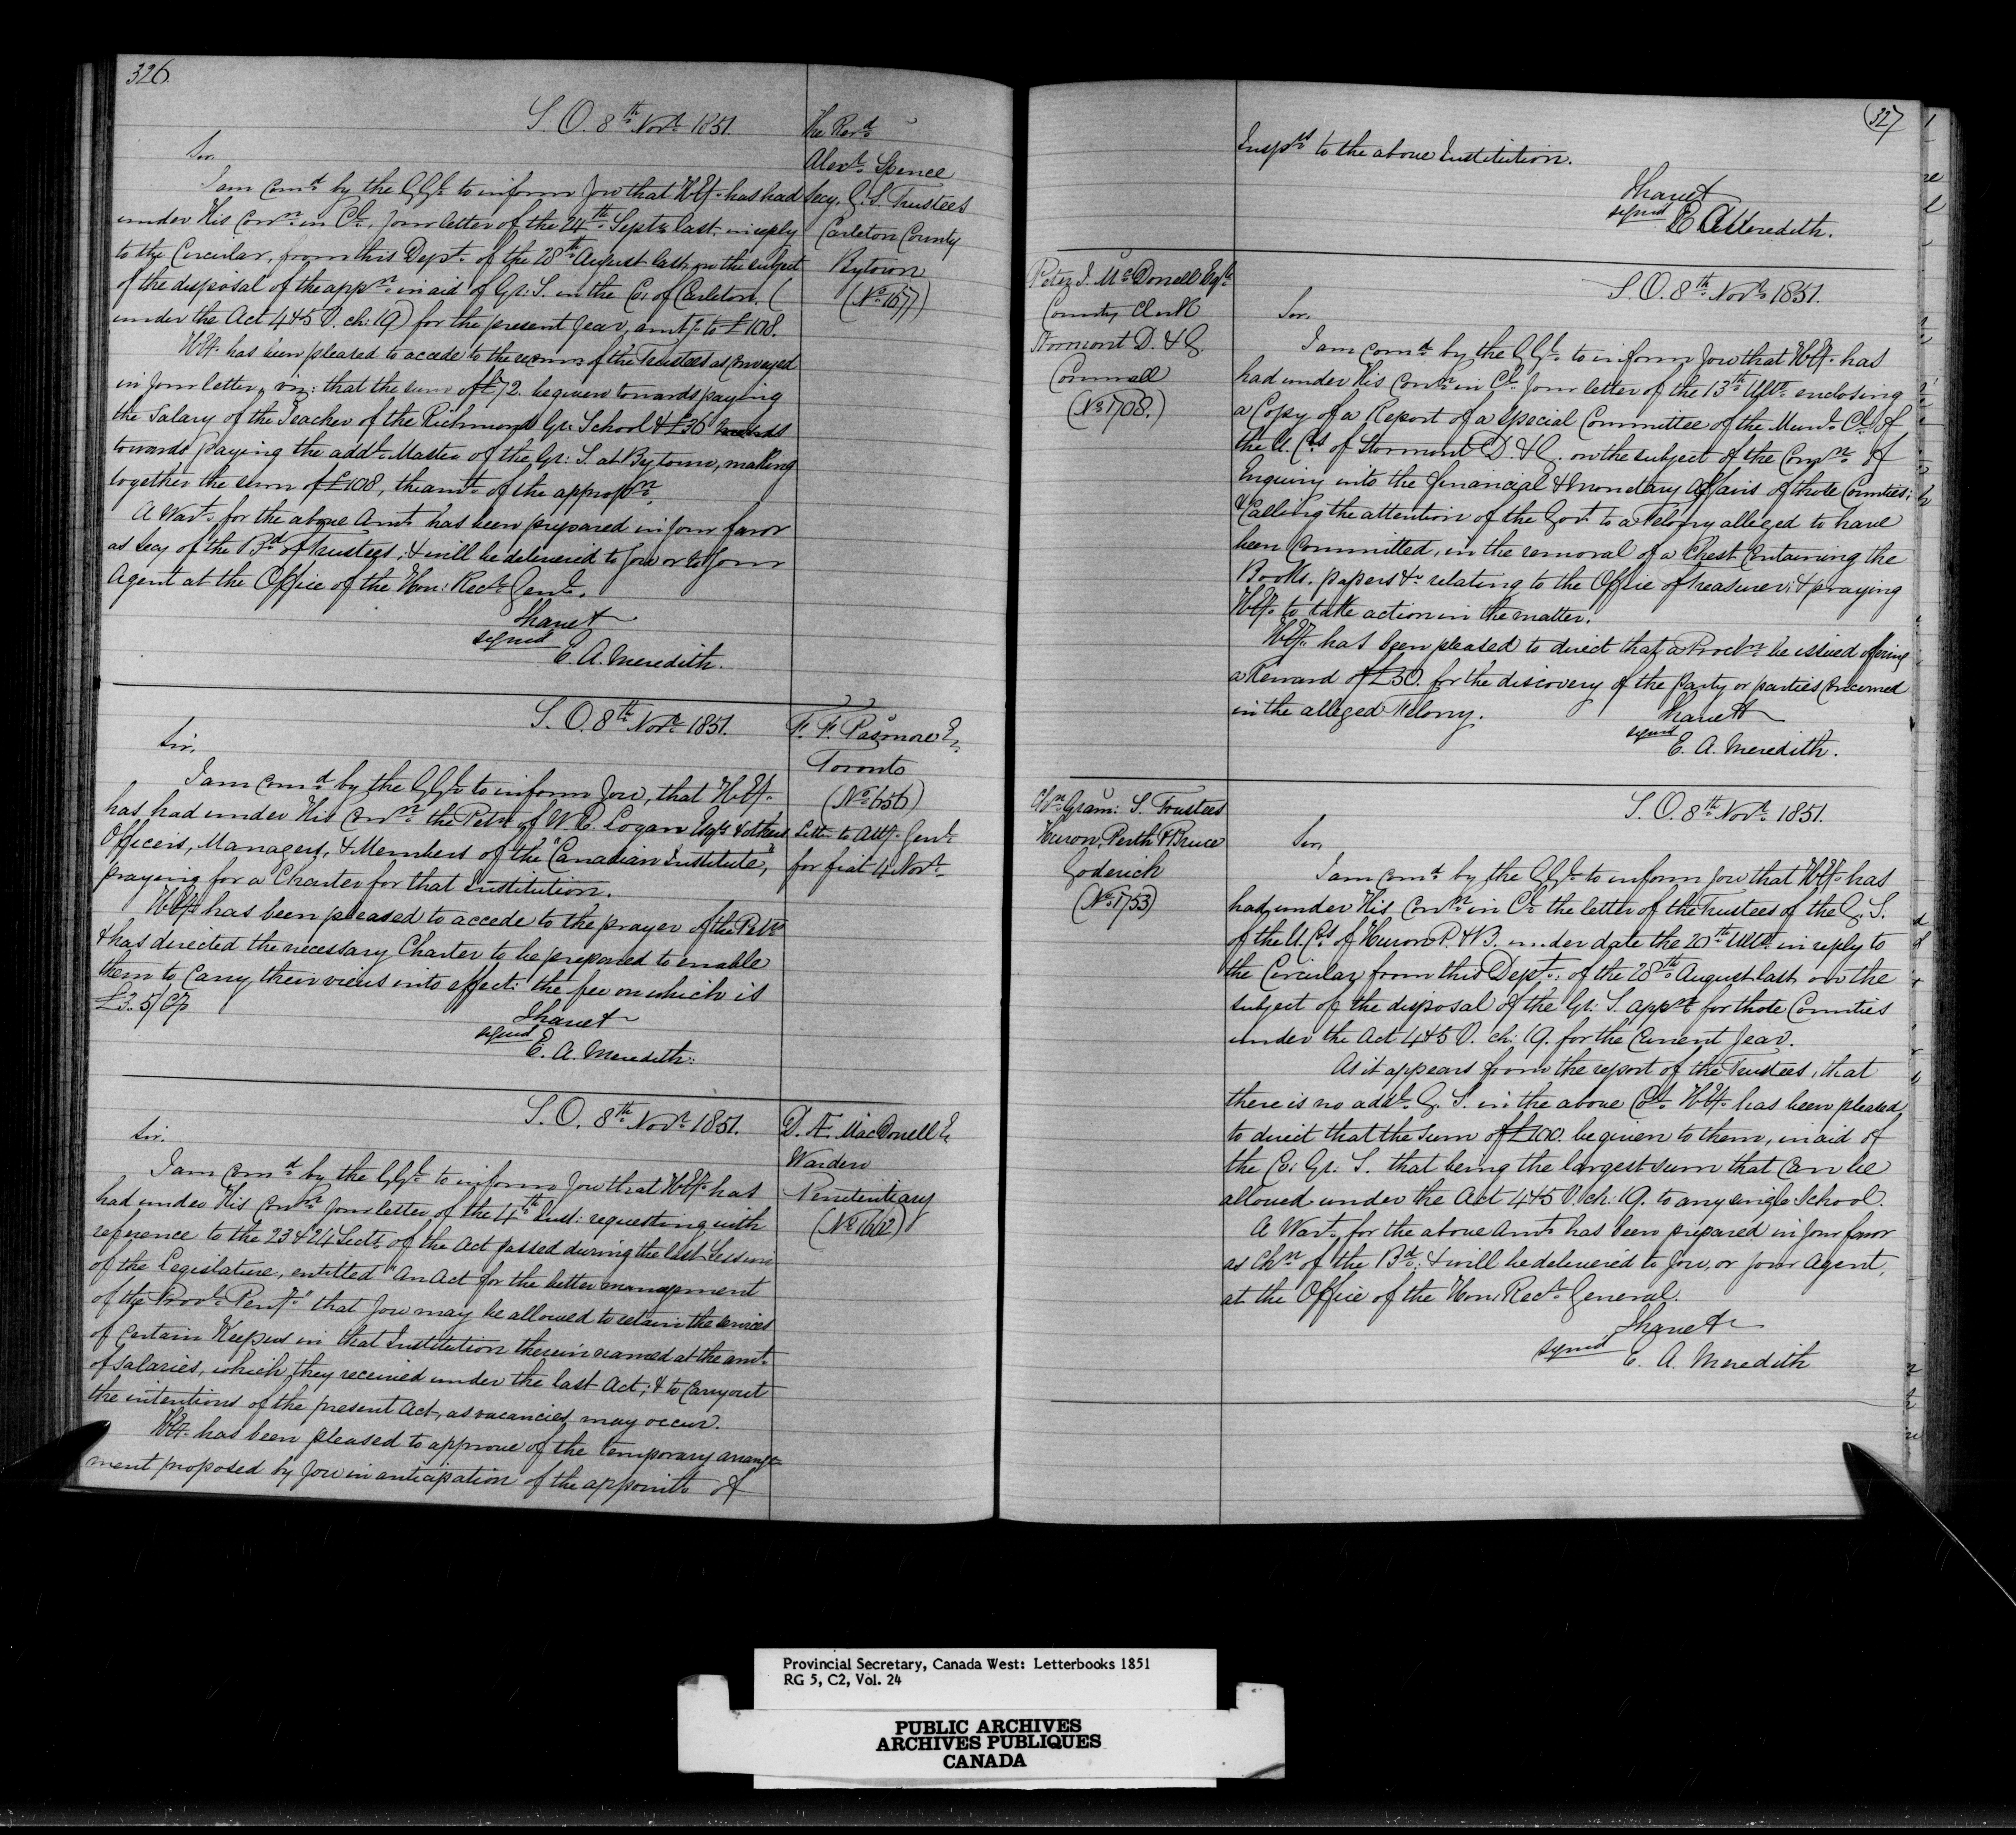 326
S. O. 8th Novr 1851.
The Revd
Alexr Spence
Secy. G. S. Trustees
Carleton County
Bytown
(No 1577)
Sir,
I am comd by the G Gl to inform you that H. Ex. has had
under His Conn in Cl, your letter of the 24th Septr last, in reply
to the Circular, from this Dept of the 28th August last, on the subject
of the disposal of the appn in aid of Gr: S. in the Co: of Carleton, (
under the Act 4 & 5 V. ch: 19) for the present year, amtg to £108.
H. Ex. has been pleased to accede to the recomn of the Trustees as conveyed
in your letter, viz: that the sum of £72. be given towards paying
the Salary of the Teacher of the Richmond Gr: School & £36 towards
towards paying the addl Master of the Gr: S. at Bytown, making
together the sum of £108, the amt of the appropn.
A Wart for the above Amt has been prepared in your favor
as Secy of the Bd of Trustees, & will be delivered to you or to your
Agent at the Office of the Hon: Recr Genl.
I have &
signed
E. A. Meredith.
S. O. 8th Novr 1851.
F. F. Pasmore E
Toronto
(No 1656)
Letter to Atty. Genl
for fiat 4 Novr
Sir,
I am comd by the G Gl to inform you, that H. Ex.
has had under His Conn the Petn of W. E. Logan Esqr & others
Officers, Managers, & Members of the "Canadian Institute",
praying for a Charter for that Institution.
H. Ex. has been pleased to accede to the prayer of the Petn
& has directed the necessary Charter to be prepared to enable
them to carry their views into effect: the fee on which is
£3. 5/ Cy
I have &
signed
E. A. Meredith.
S. O. 8th Novr 1851.
D. Æ. MacDonell E
Warden
Penitentiary
(No 1662)
Sir,
I am comd by the G Gl to inform you that H. Ex. has
had under His Conn your letter of the 4th Inst: requesting with
reference to the 23 & 24 Sects of the Act passed during the last Session
of the Legislature, entitled "An Act for the better management
of the Provl Peny." that you may be allowed to retain the services
of certain Keepers in that Institution therein named at the amt
of salaries, which they received under the last Act; & to carry out
the intentions of the present Act, as vacancies may occur.
H. Ex. has been pleased to approve of the temporary arrange-
ment proposed by you in anticipation of the appointt of
327
Insprs to the above Institution.
I have &
signed
E A Meredith.
Peter J. McDonell Esqr
County Clerk
Stormont D. & G.
Cornwall
(No 1708.)
S. O. 8th Novr 1851.
Sir,
I am comd by the G Gl to inform you that H. Ex. has
had under His Conn in Cl your letter of the 13th Ulto enclosing
a Copy of a Report of a Special Committee of the Munl Cl of
the U. Cs of Stormont D. & G. on the subject of the Comn of
Enquiry into the financial & monetary affairs of those Counties;
& calling the attention of the Govt to a Felony alleged to have
been committed, in the removal of a Chest containing the
Books, papers &c relating to the Office of Treasurer; & praying
H. Ex. to take action in the matter.
H. Ex. has been pleased to direct that a Procln be issued offering
a Reward of £50. for the discovery of the party or parties concerned
in the alleged Felony.
I have &
signed
E. A. Meredith.
Chn Gram: S. Trustees
Huron, Perth & Bruce
Goderich
(No 1753)
S. O. 8th Novr 1851.
Sir,
I am comd by the G Gl to inform you that H. Ex. has
had under His Conn in Cl the letter of the Trustees of the G. S.
of the U. Cs of Huron P. & B. under date the 20th Ulto in reply to
the Circular from this Dept. of the 28th August last, on the
subject of the disposal of the Gr: S. appn for those Counties
under the Act 4 & 5 V. ch: 19. for the current year.
As it appears from the report of the Trustees, that
there is no addl G. S. in the above Cos. H. Ex. has been pleased
to direct that the sum of £100. be given to them, in aid of
the Co: Gr: S. that being the largest sum that can be
allowed under the Act 4 & 5 V. ch: 19. to any single School.
A Wart for the above Amt has been prepared in your favor
as Chn of the Bd: & will be delivered to you, or your Agent,
at the Office of the Hon. Recr General.
I have &
signed
E. A. Meredith
Provincial Secretary, Canada West: Letterbooks 1851
RG 5, C2, Vol. 24
PUBLIC ARCHIVES
ARCHIVES PUBLIQUES
CANADA